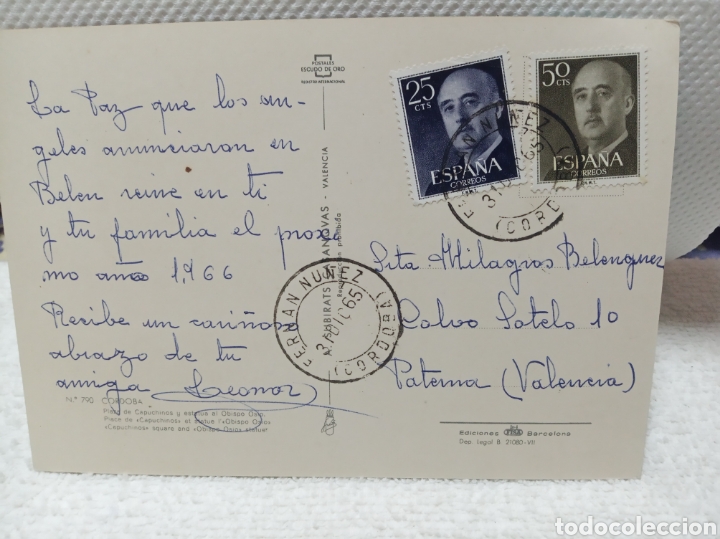 La Paz que los an-
geles anunciaron en
Belen reine en ti
y tu familia el proxi
mo año 1,966
Recibe un cariñoso
abrazo de tu
amiga Leonor
N.º 790 CORDOBA
Plaza de Capuchinos y estatua al Obispo Osio.
Place de «Capuchinos» et statue l'«Obispo Osio»
«Capuchinos» square and «Obispo Osio» statuer
POSTALES
ESCUDO DE ORO
A. SUBIRATS CASANOVAS - VALENCIA
prohibida
25
CTS
ESPAÑA
CORREOS
50
CTS
ESPAÑA
CORREOS
FERNAN NUÑEZ
31 DIC 65
(CORDOBA)
FERNAN NUÑEZ
31 DIC 65
(CORDOBA)
Srta. Milagros Belenguer
Calvo Sotelo 10
Paterna (Valencia)
Ediciones Barcelona
Dep. Legal B. 21060-VII
todocoleccion